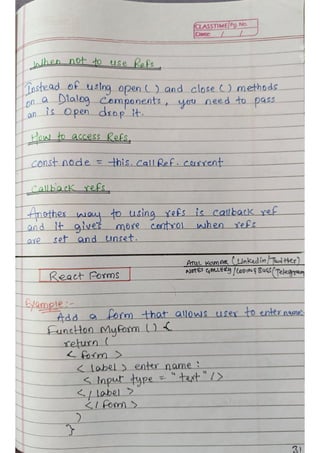 CLASSTIME Pg. No.
Date / /
When not to use Refs
Instead of using open ( ) and close ( ) methods
on a Dialog Components, you need to pass
an is Open drop it.
How to access Refs
const node = this. callRef. current
Callback refs
Another way to using refs is callback ref
and it gives more control when refs
are set and unset.
Atul Kumar (Linkedin/Twitter)
Notes Gallery / Coding Bugs (Telegram
React Forms
Example :-
Add a form that allows user to enter name
Function Myform ( ) {
return (
< form >
< label > enter name :
< Input type = "text" />
</ label >
</ form >
)
}
31